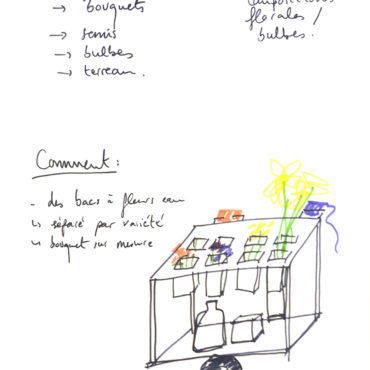 → bouquets
→ semis
→ bulbes
→ terreau.
compositions
florales /
bulbes.
Comment:
- des bacs à fleurs eau
↳ séparé par variété
↳ bouquet sur mesure